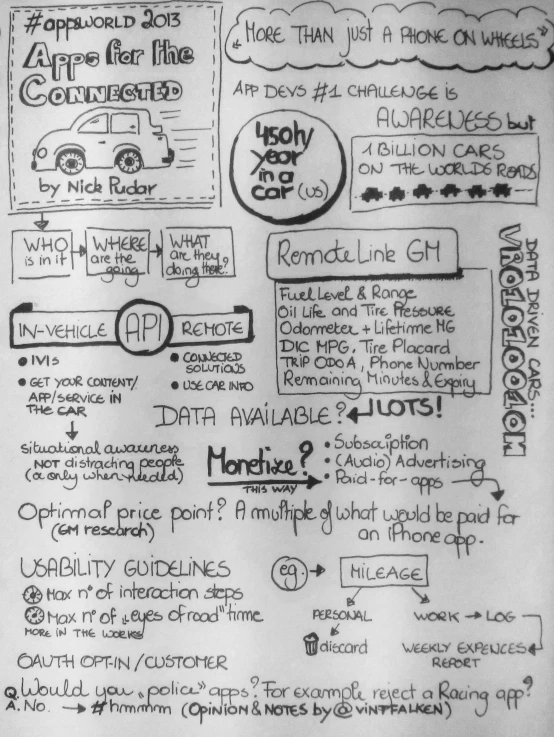 #appsworld 2013
Apps for the
Connected
by Nick Pudar
"More than just a phone on wheels"
App devs #1 challenge is
awareness but
450h/
year
in a
car (US)
1 billion cars
on the worlds roads
Who
is in it
Where
are the
going
What
are they
doing there?
RemoteLink GM
Fuel Level & Range
Oil Life and Tire Pressure
Odometer + Lifetime MG
DIC MPG, Tire Placard
Trip Odo A, Phone Number
Remaining Minutes & Expiry
Data driven cars...
In-vehicle
API
Remote
IVIs
Get your content/
app/service in
the car
Connected
solutions
Use car info
Data available? Lots!
situational awareness
not distracting people
(or only when needed)
Monetize?
this way
Subscription
(Audio) Advertising
Paid-for-apps
Optimal price point? A multiple of what would be paid for
(GM research)
an iPhone app.
Usability guidelines
Max n° of interaction steps
Max n° of "eyes of road" time
more in the works
eg.
Mileage
Personal
discard
Work → Log
Weekly expences
report
OAuth opt-in/customer
Q. Would you "police" apps? For example reject a Racing app?
A. No. → #hmmmm (Opinion & notes by @vintfalken)